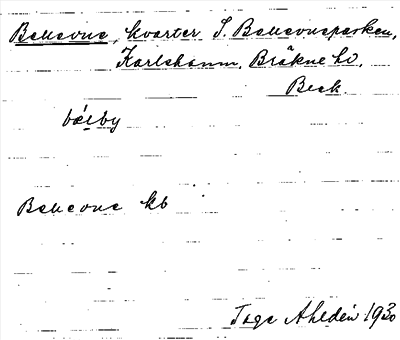 Bellevue, kvarter I. Bellevueparken,
Karlshamn, Bräkne hd,
Blek.
Bellevue kb
Tage Ahldén 1930